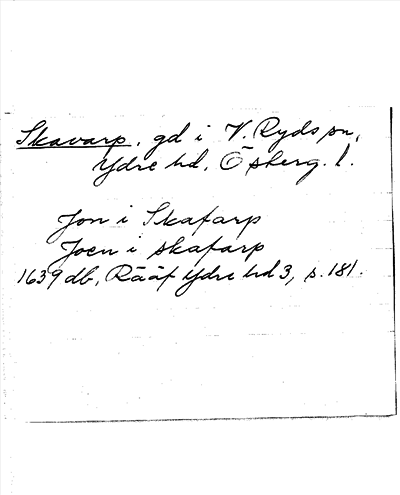 Skavarp, gd i V. Ryds sn,
Ydre hd, Ösberg. l.
Jon i Skafarp
Joen i skafarp
1639 db, Rääf Ydre hd 3, s. 181.